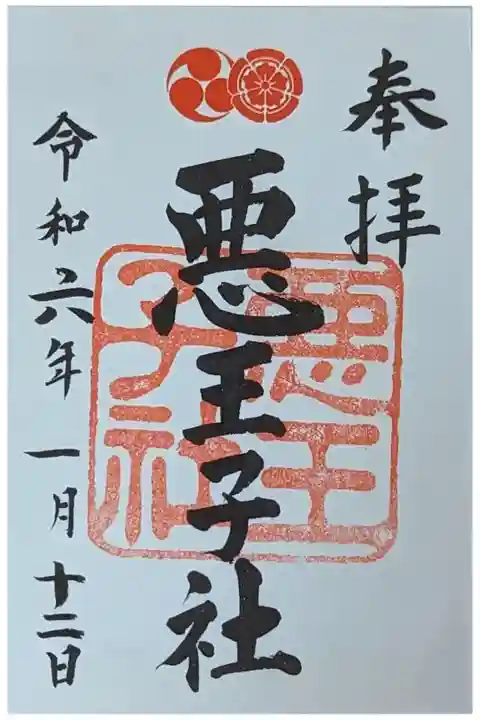 奉拝
悪王子社
悪王子社
令和六年一月十二日